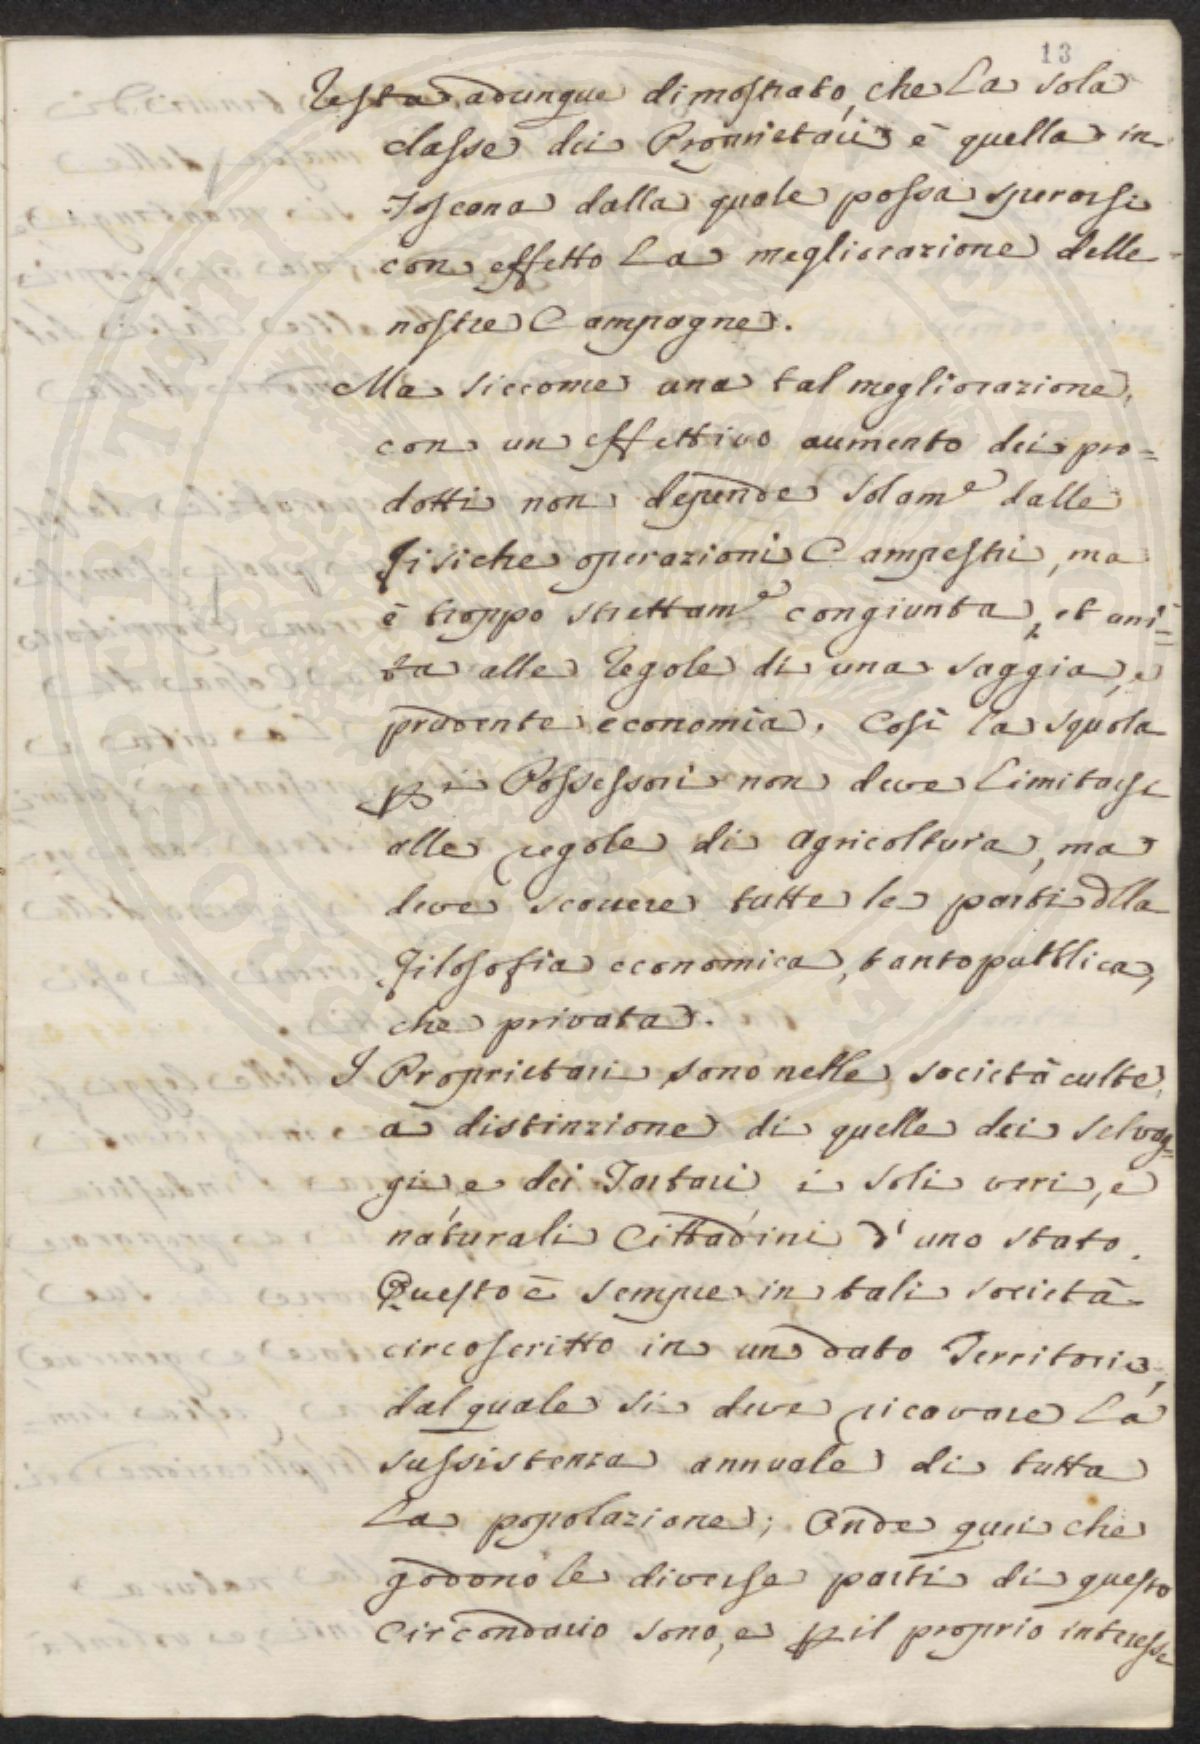 13
Resta adunque dimostrato, che la sola
classe dei Proprietarii è quella in
Toscana dalla quale possa sperarsi
con effetto la megliorazione delle
nostre Campagne.
Ma siccome una tal megliorazione,
con un effettivo aumento dei pro=
dotti non depende solam.e dalle
fisiche operazioni Campestri, ma
è troppo strettam.e congiunta, et uni=
ta alle regole di una saggia, e
prudente economia. Così la squola
p i Possessori non deve limitarsi
alle regole di agricoltura, ma
deve scorrere tutte le parti dlla
filosofia economica, tanto pubblica,
che privata.
I Proprietari sono nelle società culte,
à distinzione di quelle dei selvag=
gi e dei Tartari i soli veri, e
naturali Cittadini d'uno stato.
Questo è sempre in tali società
circoscritto in un dato Territorio,
dal quale si deve ricavare la
sussistenza annuale di tutta
la popolazione; Onde quei che
godono le diverse parti di questo
circondario sono, e p il proprio interesse
PROSPERITATI PUBLICAE AUGENDAE